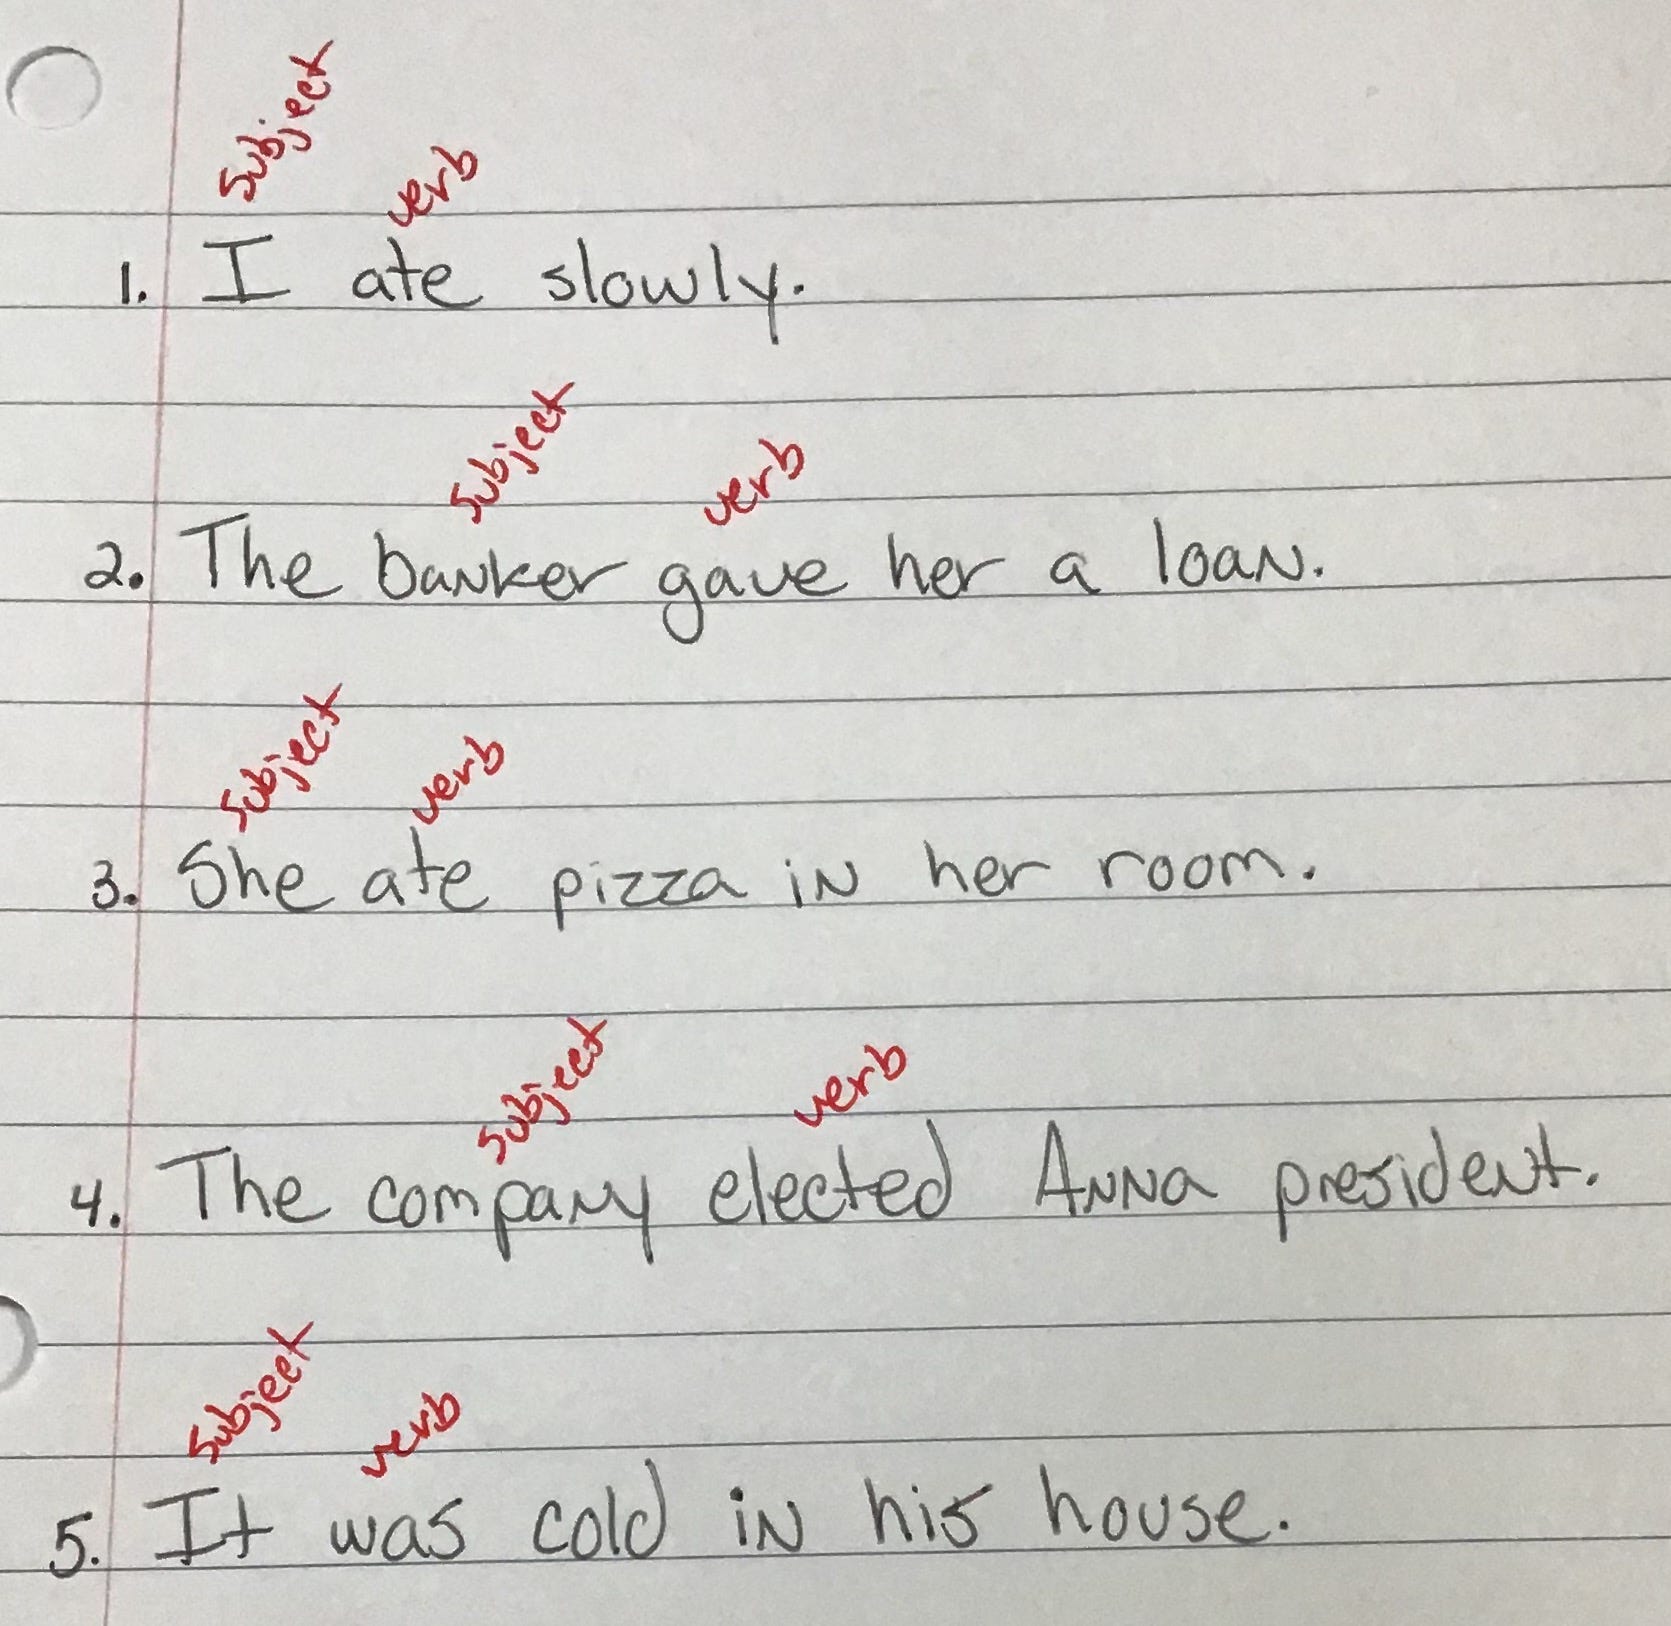 subject verb
1. I ate slowly.
subject verb
2. The banker gave her a loan.
subject verb
3. She ate pizza in her room.
subject verb
4. The company elected Anna president.
subject verb
5. It was cold in his house.